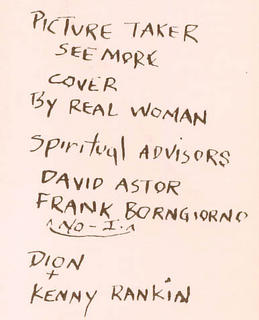 PICTURE TAKER
SEE MORE
COVER
By REAL WOMAN
Spiritual ADVISORS
DAVID ASTOR
FRANK BORNGIORNO
^NO-I.^
DION
+
KENNY RANKIN